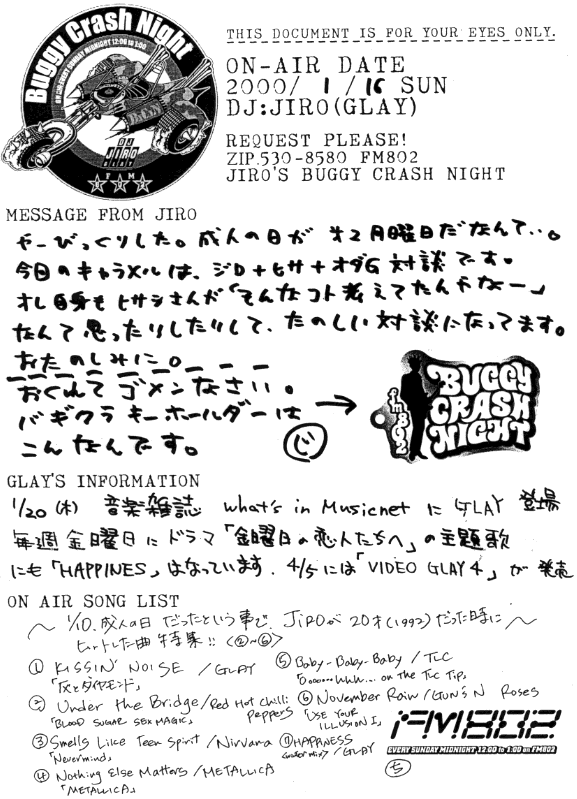 Buggy Crash Night
ON-AIR EVERY SUNDAY MIDNIGHT 12:00 to 1:00
DJ
JIRO
GLAY
FM
802
THIS DOCUMENT IS FOR YOUR EYES ONLY.
ON-AIR DATE
2000/ 1 /16 SUN
DJ:JIRO(GLAY)
REQUEST PLEASE!
ZIP.530-8580 FM802
JIRO'S BUGGY CRASH NIGHT
MESSAGE FROM JIRO
やーびっくりした。成人の日が オ2月曜日だなんて・・。
今日のキャラメルは、ジロ+ヒサ+オダG 対談です。
オレ自身も ヒサシさんが「そんなコト考えてたんやなー」
なんて思ったりしたりして、たのしい対談になってます。
おたのしみに。
おくれて ゴメンなさい。
バギクラ キーホールダーは →
こんなんです。 ジ
fm802
BUGGY
CRASH
NIGHT
GLAY'S INFORMATION
1/20 (木) 音楽雑誌 what's in Musicnet に GLAY 登場
毎週 金曜日に ドラマ「金曜日の恋人たちへ」の主題歌
にも「HAPPINES」はなっています. 4/5には「VIDEO GLAY 4」が 発売
ON AIR SONG LIST
〜 1/10.成人の日 だったという事で、JIROが 20才(1992)だった時に 〜
ヒットした曲 特集!! <②~⑥>
① KISSIN' NOISE / GLAY
「灰とダイヤモンド」
② Under the Bridge / Red Hot Chili Peppers
「BLOOD SUGAR SEX MAGIC」
③ Smells Like Teen Spirit / Nirvana
「Nevermind」
④ Nothing Else Matters / METALLICA
「METALLICA」
⑤ Baby-Baby-Baby / TLC
「Ooooooohhh... on the TLC Tip」
⑥ November Rain / GUNS N Roses
「USE YOUR ILLUSION I」
⑦ HAPPINESS
(winter mix) / GLAY
FM802
EVERY SUNDAY MIDNIGHT 12:00 to 1:00 on FM802
ち